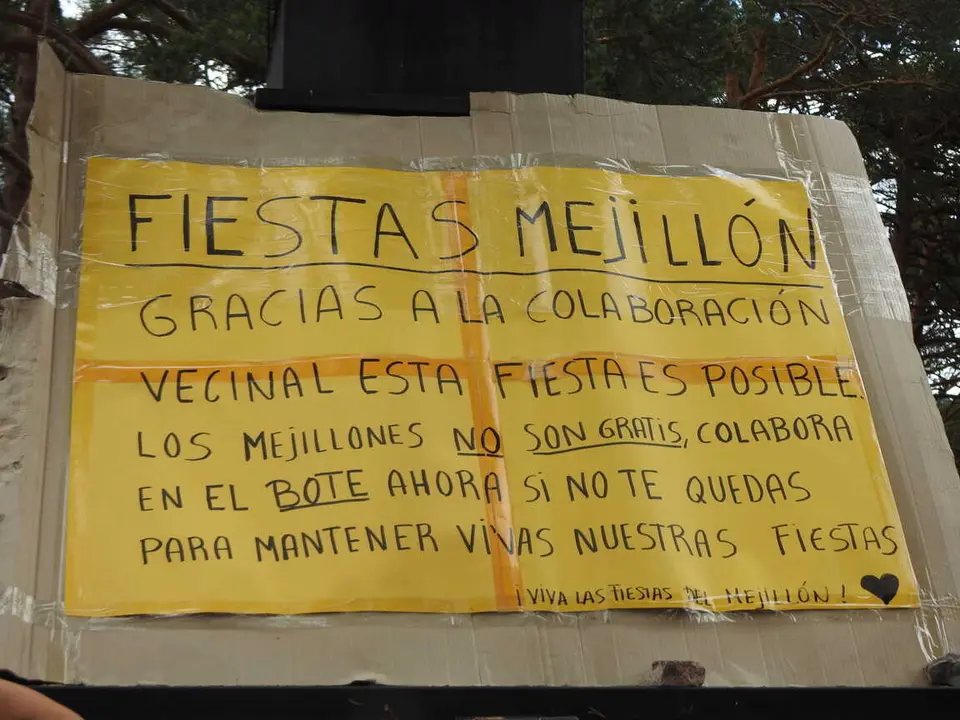 FIESTAS MEJILLÓN
GRACIAS A LA COLABORACIÓN
VECINAL ESTA FIESTA ES POSIBLE.
LOS MEJILLONES NO SON GRATIS, COLABORA
EN EL BOTE AHORA SI NO TE QUEDAS
PARA MANTENER VIVAS NUESTRAS FIESTAS
¡VIVA LAS FIESTAS DEL MEJILLÓN! ♥